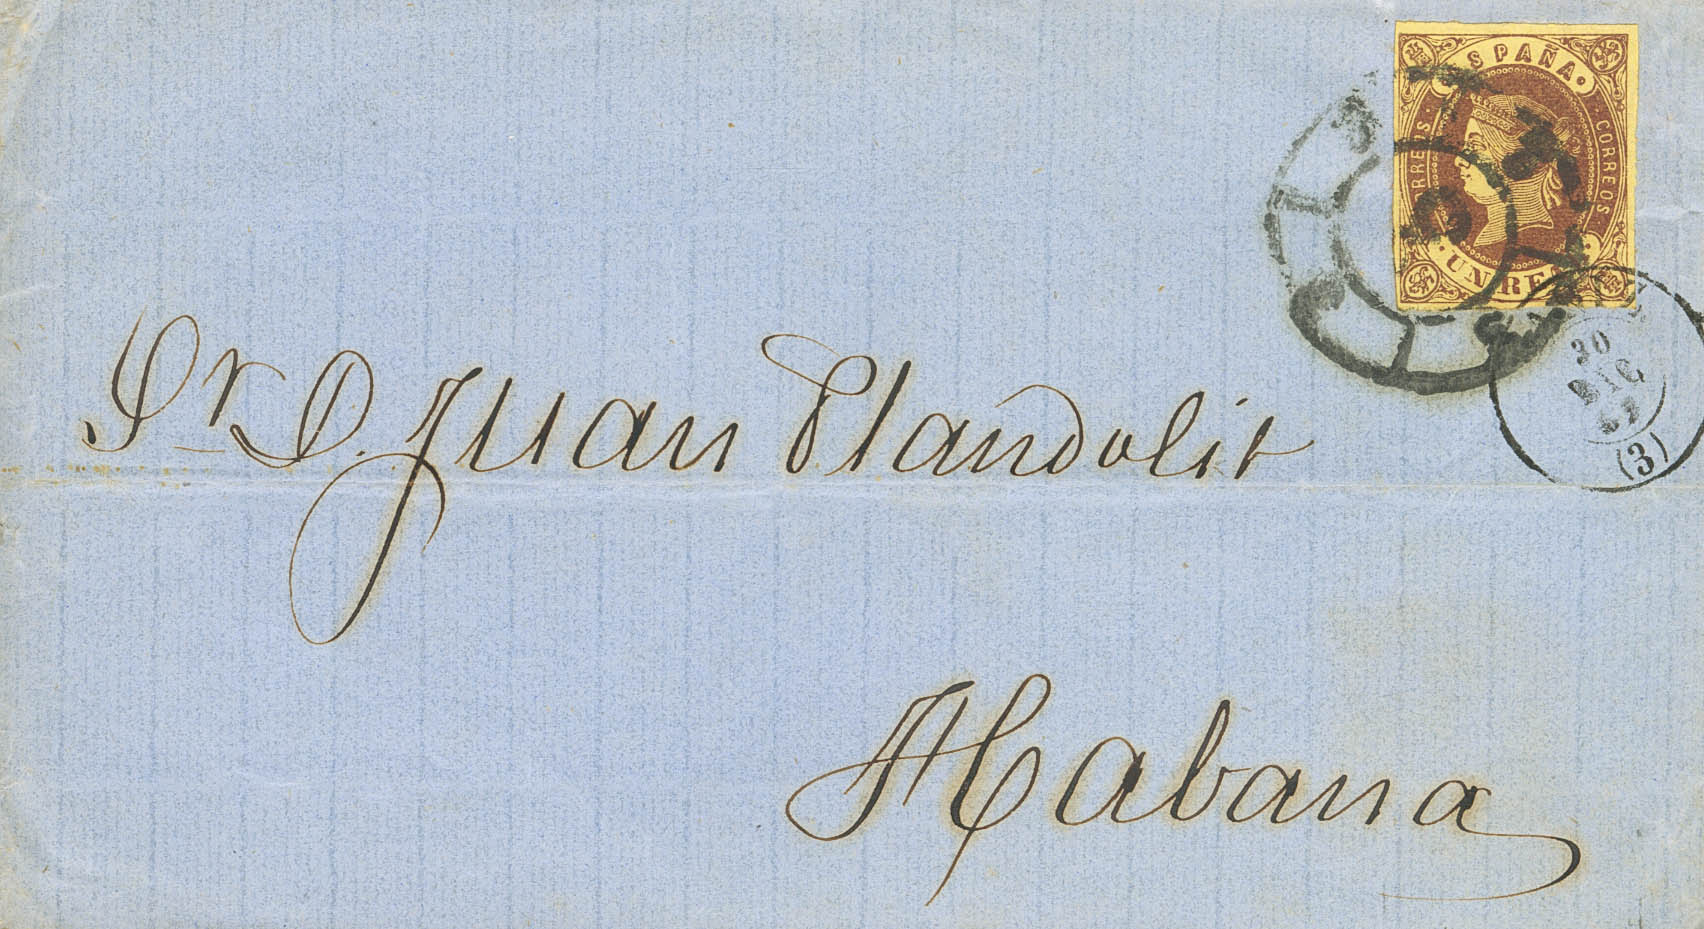 ESPAÑA
CORREOS CORREOS
UN REAL
30
DIC
62
(3)
Sr. D. Juan Plandolit
Habana